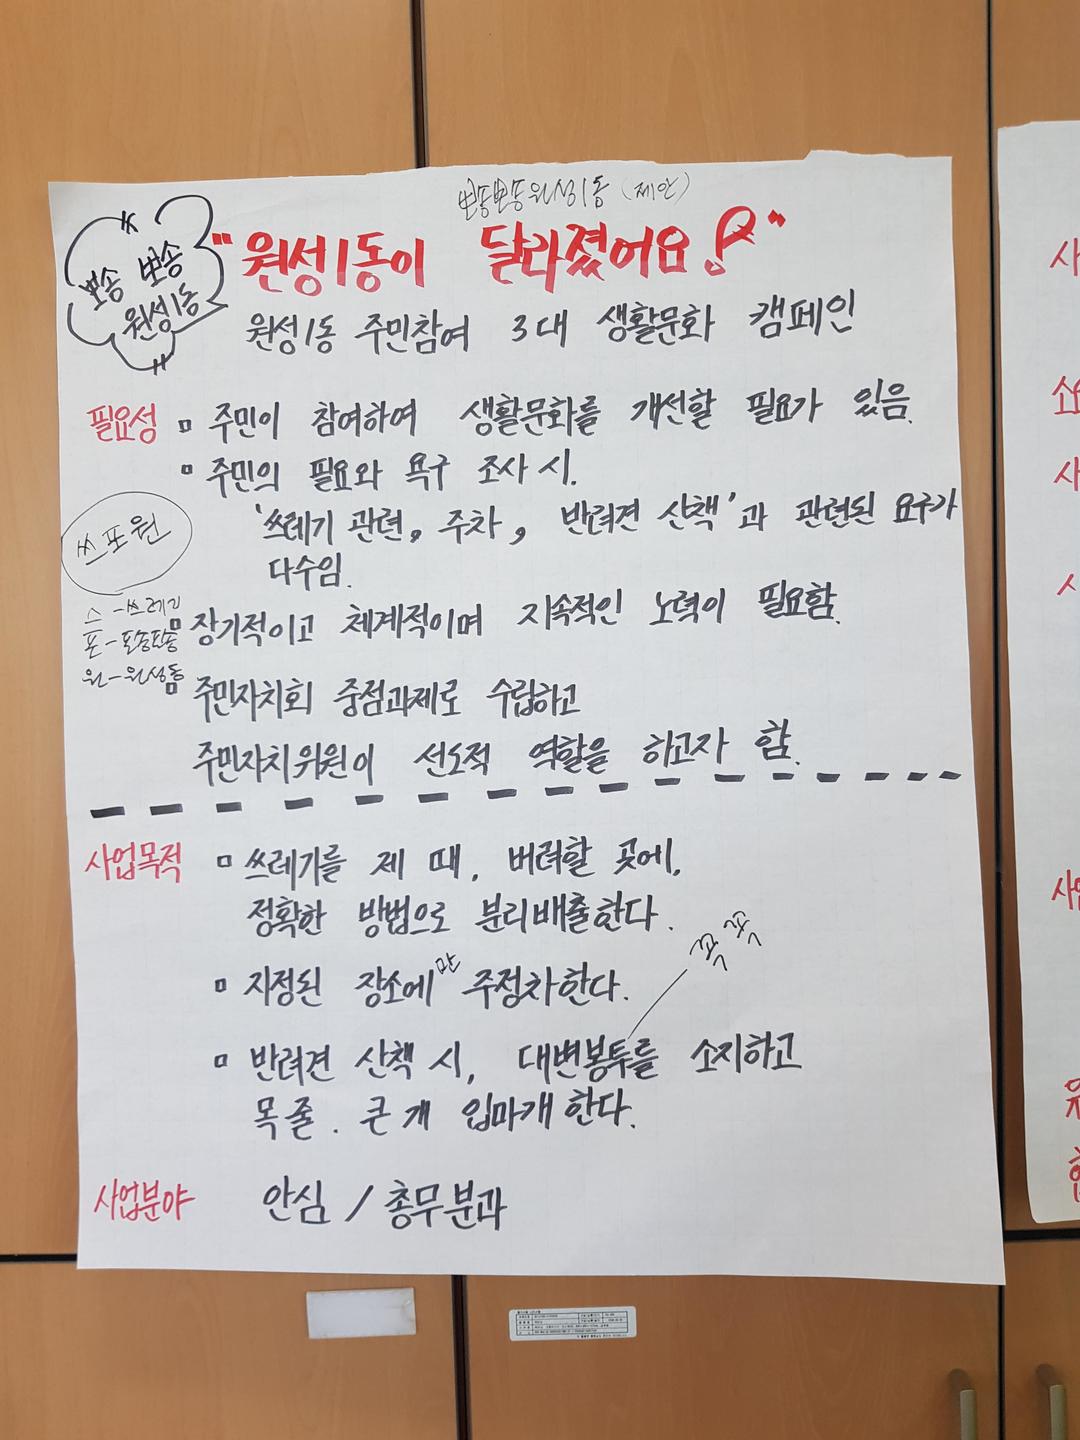 뽀송뽀송원성1동 (제안)
"원성1동이 달라졌어요!"
뽀송 뽀송
원성1동
원성1동 주민참여 3대 생활문화 캠페인
필요성 ▫ 주민이 참여하여 생활문화를 개선할 필요가 있음.
▫ 주민의 필요와 욕구 조사 시.
'쓰레기 관련, 주차, 반려견 산책'과 관련된 요구가
다수임.
쓰포원
스-쓰레기
포-포송포송
원-원성동
장기적이고 체계적이며 지속적인 노력이 필요함.
주민자치회 중점과제로 수립하고
주민자치위원이 선도적 역할을 하고자 함.
사업목적 ▫ 쓰레기를 제 때, 버려할 곳에,
정확한 방법으로 분리배출한다.
▫ 지정된 장소에만 주정차한다.
꼭꼭
▫ 반려견 산책 시, 대변봉투를 소지하고
목줄. 큰 개 입마개 한다.
사업분야 안심 / 총무분과